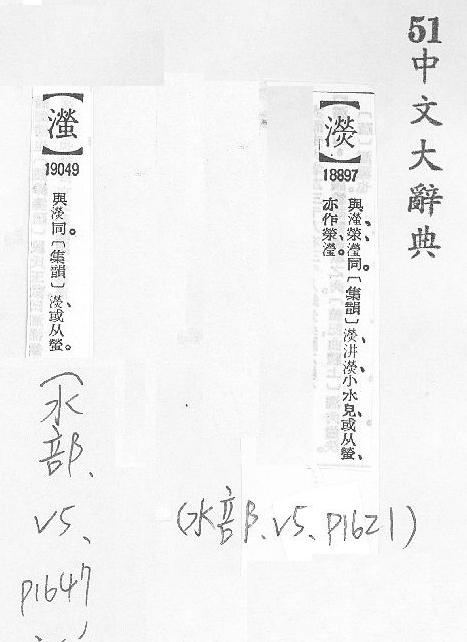 51中文大辭典
【濙】
18897
與㶈、滎、瀅同。〔集韻〕濙、汫濙、小水皃、或从螢、
亦作滎、瀅。
(水部、V5、P1621)
【㶈】
19049
與濙同。〔集韻〕濙、或从螢。
(水
部、
V5、
P1647